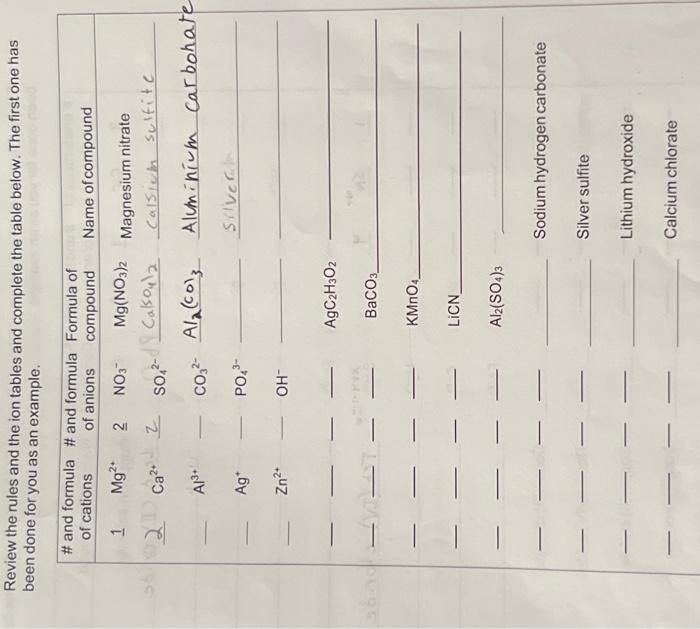 Review the rules and the ion tables and complete the table below. The first one has
been done for you as an example.
# and formula # and formula Formula of Name of compound
of cations of anions compound
1 Mg²⁺ 2 NO₃⁻ Mg(NO₃)₂ Magnesium nitrate
2 Ca²⁺ 2 SO₄²⁻ Ca(SO₄)₂ Calsium sulfite
Al³⁺ CO₃²⁻ Al₂(CO)₃ Aluminium carbohate
Ag⁺ PO₄³⁻ Silver
Zn²⁺ OH⁻
AgC₂H₃O₂
BaCO₃
KMnO₄
LiCN
Al₂(SO₄)₃
Sodium hydrogen carbonate
Silver sulfite
Lithium hydroxide
Calcium chlorate